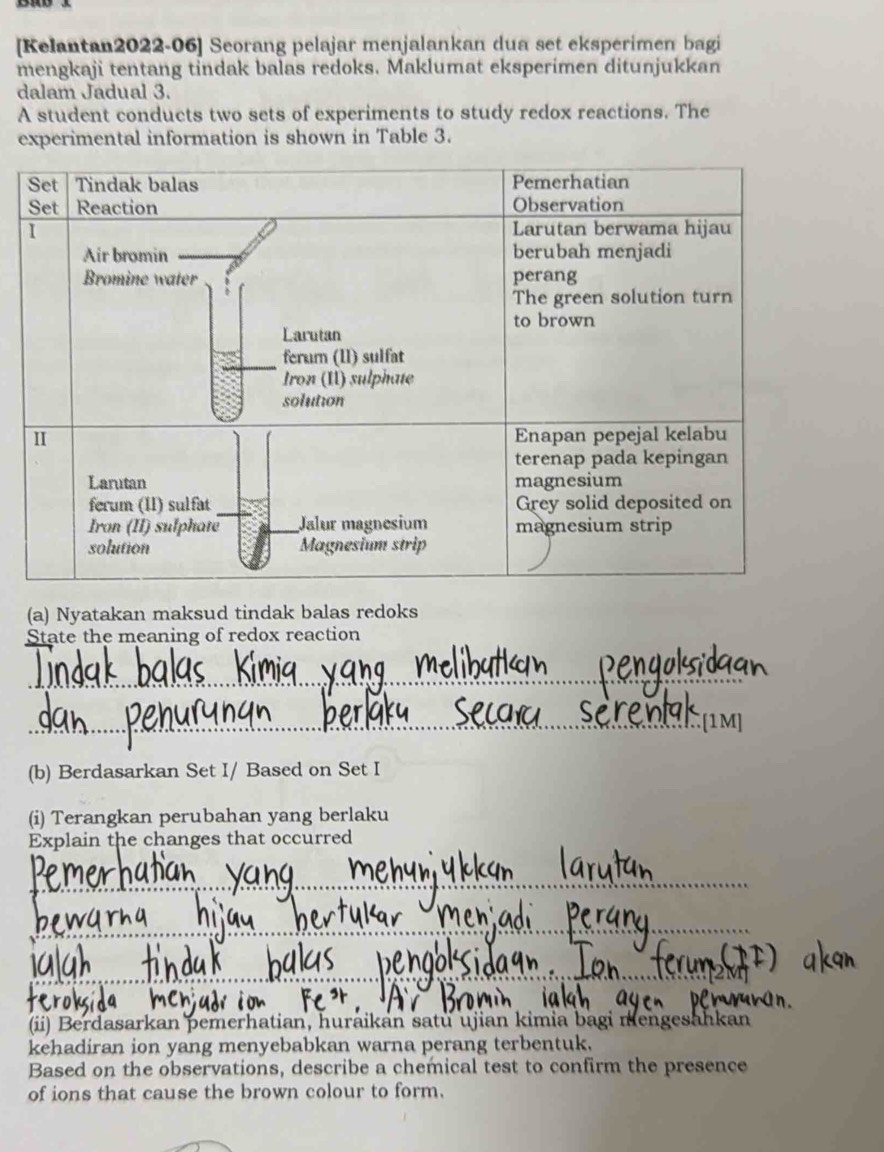 [Kelantan2022-06] Seorang pelajar menjalankan dua set eksperimen bagi
mengkaji tentang tindak balas redoks. Maklumat eksperimen ditunjukkan
dalam Jadual 3.
A student conducts two sets of experiments to study redox reactions. The
experimental information is shown in Table 3.
Set Tindak balas Pemerhatian
Set Reaction Observation
I
Air bromin
Bromine water
Larutan
ferum (II) sulfat
Iron (II) sulphate
solution
Larutan berwama hijau
berubah menjadi
perang
The green solution turn
to brown
II
Larutan
ferum (II) sulfat
Iron (II) sulphate
solution
Jalur magnesium
Magnesium strip
Enapan pepejal kelabu
terenap pada kepingan
magnesium
Grey solid deposited on
magnesium strip
(a) Nyatakan maksud tindak balas redoks
State the meaning of redox reaction
Tindak balas kimia yang melibatkan pengoksidaan
dan penurunan berlaku secara serentak [1M]
(b) Berdasarkan Set I/ Based on Set I
(i) Terangkan perubahan yang berlaku
Explain the changes that occurred
Pemerhatian yang menunjukkan larutan
bewarna hijau bertukar menjadi perang
ialah tindak balas pengoksidaan. Ion ferum (II) akan
teroksida menjadi ion Fe³⁺, Air Bromin ialah agen penurunan.
(ii) Berdasarkan pemerhatian, huraikan satu ujian kimia bagi mengesahkan
kehadiran ion yang menyebabkan warna perang terbentuk.
Based on the observations, describe a chemical test to confirm the presence
of ions that cause the brown colour to form.